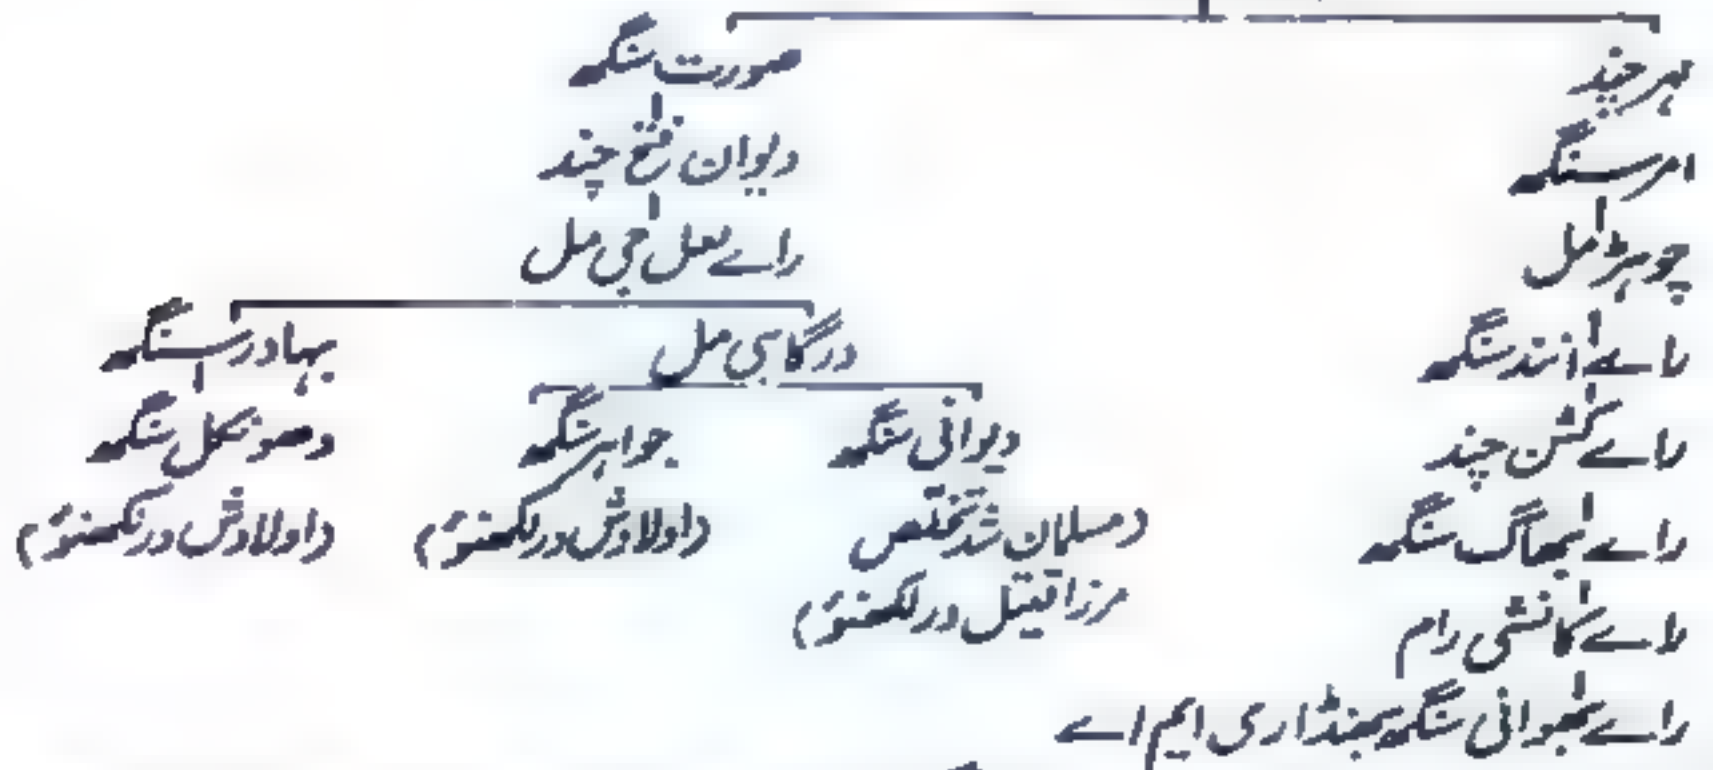 ہرچند
امرسنگھ
چوہڑ مل
رائے انندسنگھ
رائے کشن چند
رائے بھاگ سنگھ
رائے کانشی رام
رائے بھوانی سنگھ بھنڈاری ایم اے
صورت سنگھ
دیوان فتح چند
رائے لعل جی مل
درگاہی مل
دیوانی سنگھ
(مسلمان شد تخلص
مرزا قتیل در لکھنؤ)
جواہر سنگھ
(اولادش در لکھنؤ)
بہادر سنگھ
دھونکل سنگھ
(اولادش در لکھنؤ)